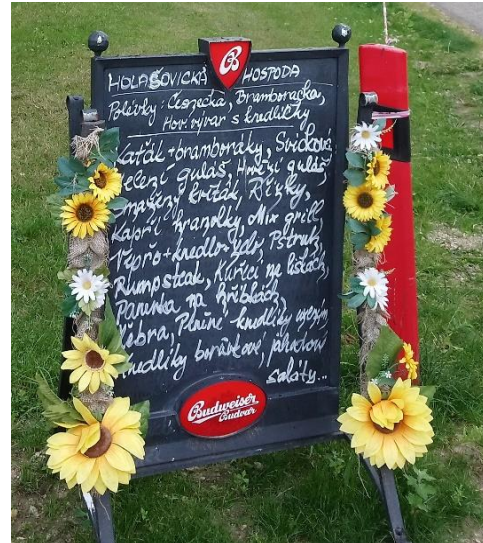 HOLAŠOVICKÁ HOSPODA
Polévky: Česnečka, Bramboračka,
Hov. vývar s knedlíčky
Katʼák + bramboráky, Svíčková
zelezí guláš, Hovězí guláš
Smažený květák, Řízky,
Kapří hranolky, Mix grill,
Vepřo + knedlo + zelo, Pstruh,
Rumpsteak, Kuřecí na liškách,
Panenka na hříbkách,
Žebra, Plněné knedlíky uzeným
Knedlíky borůvkové, jahodové
saláty...
Budweiser
Budvar